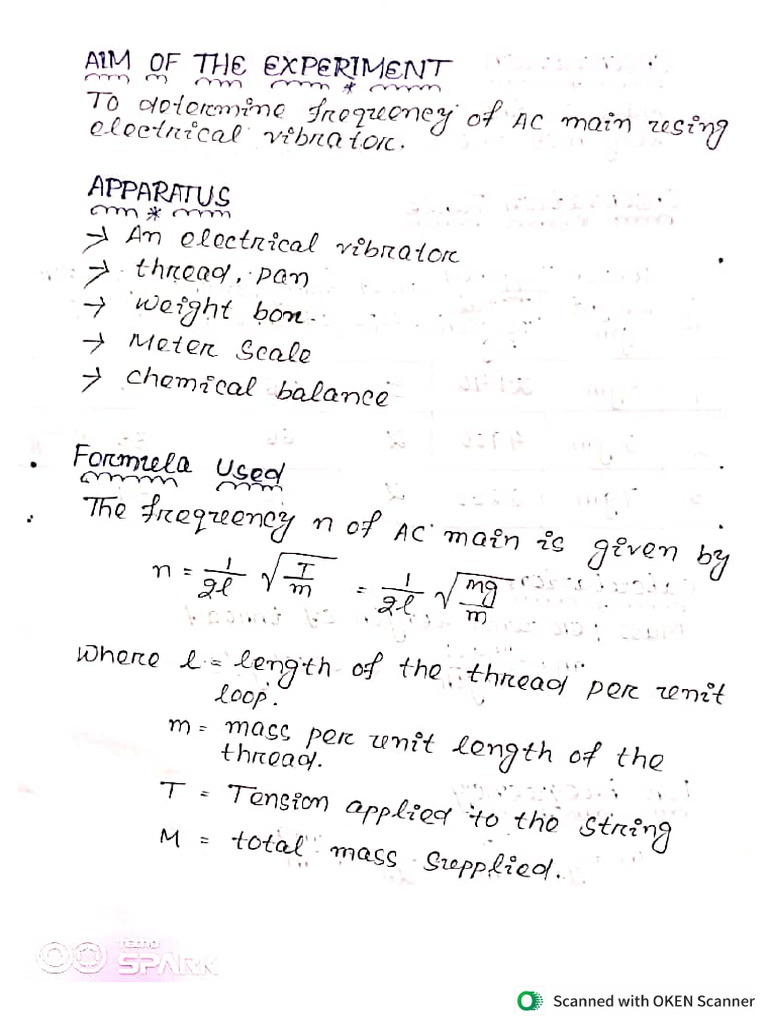 AIM OF THE EXPERIMENT
To determine frequency of AC main using
electrical vibrator.
APPARATUS
→ An electrical vibrator
→ thread, pan
→ weight box.
→ Meter Scale
→ chemical balance
Formula Used
The frequency n of AC main is given by
n = 1/2l √(T/m) = 1/2l √(mg/m)
Where l = length of the thread per unit
loop.
m = mass per unit length of the
thread.
T = Tension applied to the string
M = total mass supplied.
TECNO
SPARK
Scanned with OKEN Scanner